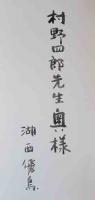 村野四郎先生奥様
湖西優烏